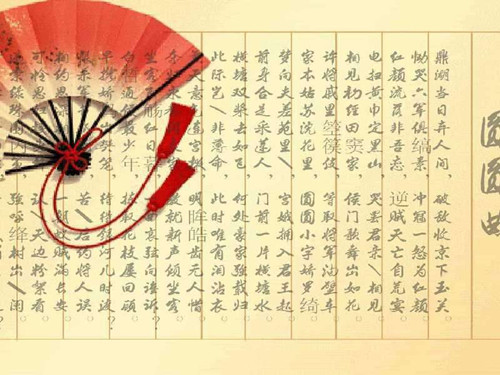 圆圆曲
鼎湖当日弃人间，破敌收京下玉关。
恸哭六军俱缟素，冲冠一怒为红颜。
红颜流落非吾恋，逆贼天亡自荒宴。
电扫黄巾定黑山，哭罢君亲再相见。
相见初经田窦家，侯门歌舞出如花。
许将戚里箜篌伎，等取将军油壁车。
家本姑苏浣花里，圆圆小字娇罗绮。
梦向夫差苑里游，宫娥拥入君王起。
前身合是采莲人，门前一片横塘水。
横塘双桨去如飞，何处豪家强载归。
此际岂知非薄命，此时唯有泪沾衣。
天意气连宫掖，明眸皓齿无人惜。
夺归永巷闭良家，教就新声倾坐客。
坐客飞觞红日暮，一曲哀弦向谁诉？
白皙通侯最少年，拣取花枝屡回顾。
早携娇鸟出樊笼，待得银河几时渡？
恨杀军书抵死催，苦留后约将人误。
相约恩深相见难，一朝蚁贼满长安。
可怜思妇楼头柳，认作天边粉絮看。
索绿珠围内第，强呼绛树出雕阑。